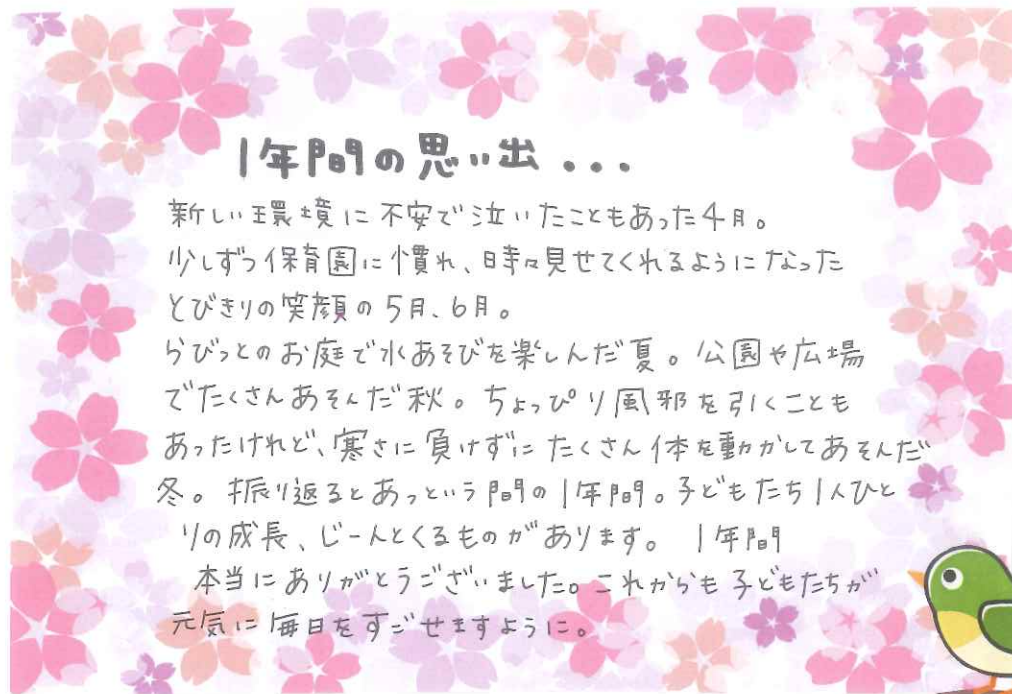 1年間の思い出...
新しい環境に不安で泣いたこともあった4月。
少しずつ保育園に慣れ、時々見せてくれるようになった
とびきりの笑顔の5月、6月。
らびっとのお庭で水あそびを楽しんだ夏。公園や広場
でたくさんあそんだ秋。ちょっぴり風邪を引くことも
あったけれど、寒さに負けずにたくさん体を動かしてあそんだ
冬。振り返るとあっという間の1年間。子どもたち1人ひと
りの成長、じーんとくるものがあります。 1年間
本当にありがとうございました。これからも子どもたちが
元気に毎日をすごせますように。